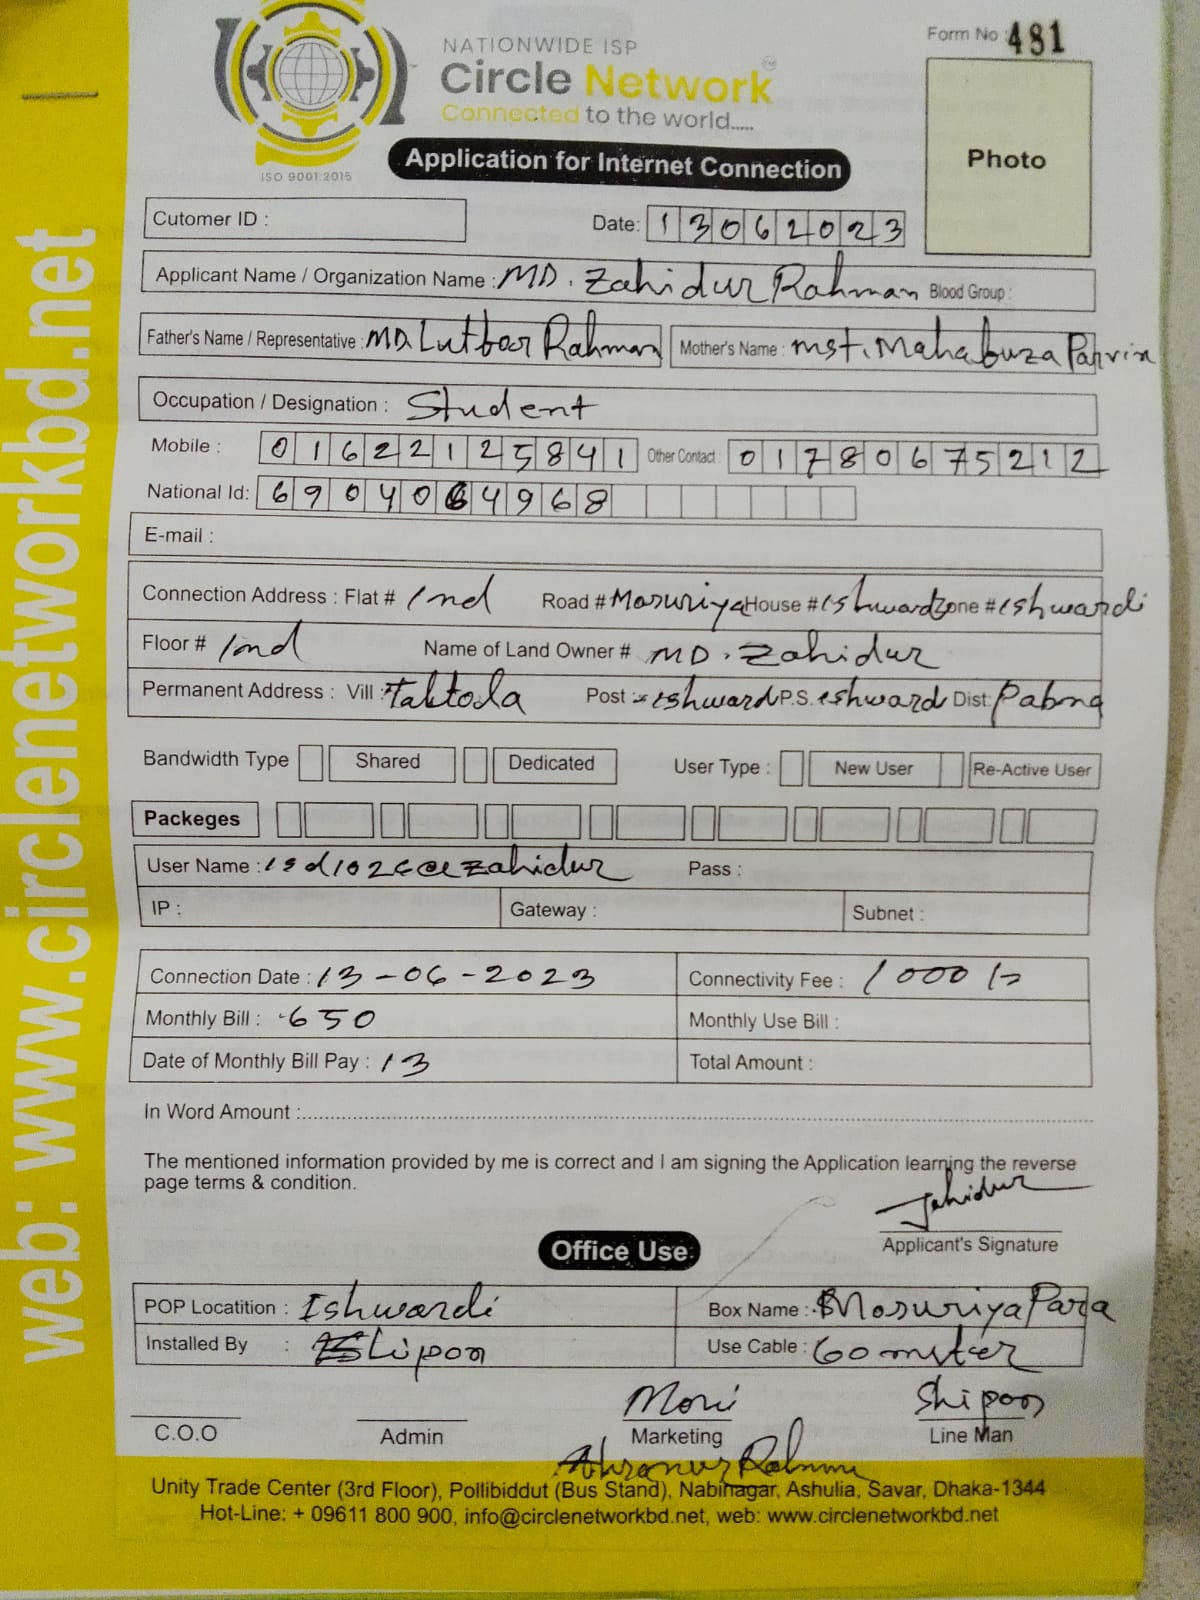 web: www.circlenetworkbd.net
NATIONWIDE ISP
Circle Network
Connected to the world.....
ISO 9001:2015
Form No : 481
Application for Internet Connection
Photo
Cutomer ID :
Date: 13062023
Applicant Name / Organization Name : MD. Zahidur Rahman Blood Group :
Father's Name / Representative : MD. Lutboor Rahman Mother's Name : Mst. Mahabuza Parvin
Occupation / Designation : Student
Mobile : 01622125841 Other Contact : 01780675212
National Id: 6904064968
E-mail :
Connection Address : Flat # 1nd Road # Mosuriya House # ishwardi Zone # ishwardi
Floor # 1nd Name of Land Owner # MD. Zahidur
Permanent Address : Vill : Taktola Post : ishward P.S. eshward Dist: Pabna
Bandwidth Type Shared Dedicated User Type : New User Re-Active User
Packeges
User Name : Zahidur Pass :
IP : Gateway : Subnet :
Connection Date : 13-06-2023 Connectivity Fee : 1000/=
Monthly Bill : 650 Monthly Use Bill :
Date of Monthly Bill Pay : 13 Total Amount :
In Word Amount :
The mentioned information provided by me is correct and I am signing the Application learning the reverse
page terms & condition.
Jahidur
Applicant's Signature
Office Use
POP Locatition : Ishwardi Box Name : Mosuriya Para
Installed By : Shipon Use Cable : 60 mster
Moni Shipon
C.O.O Admin Marketing Line Man
Rahman
Unity Trade Center (3rd Floor), Pollibiddut (Bus Stand), Nabinagar, Ashulia, Savar, Dhaka-1344
Hot-Line: + 09611 800 900, info@circlenetworkbd.net, web: www.circlenetworkbd.net